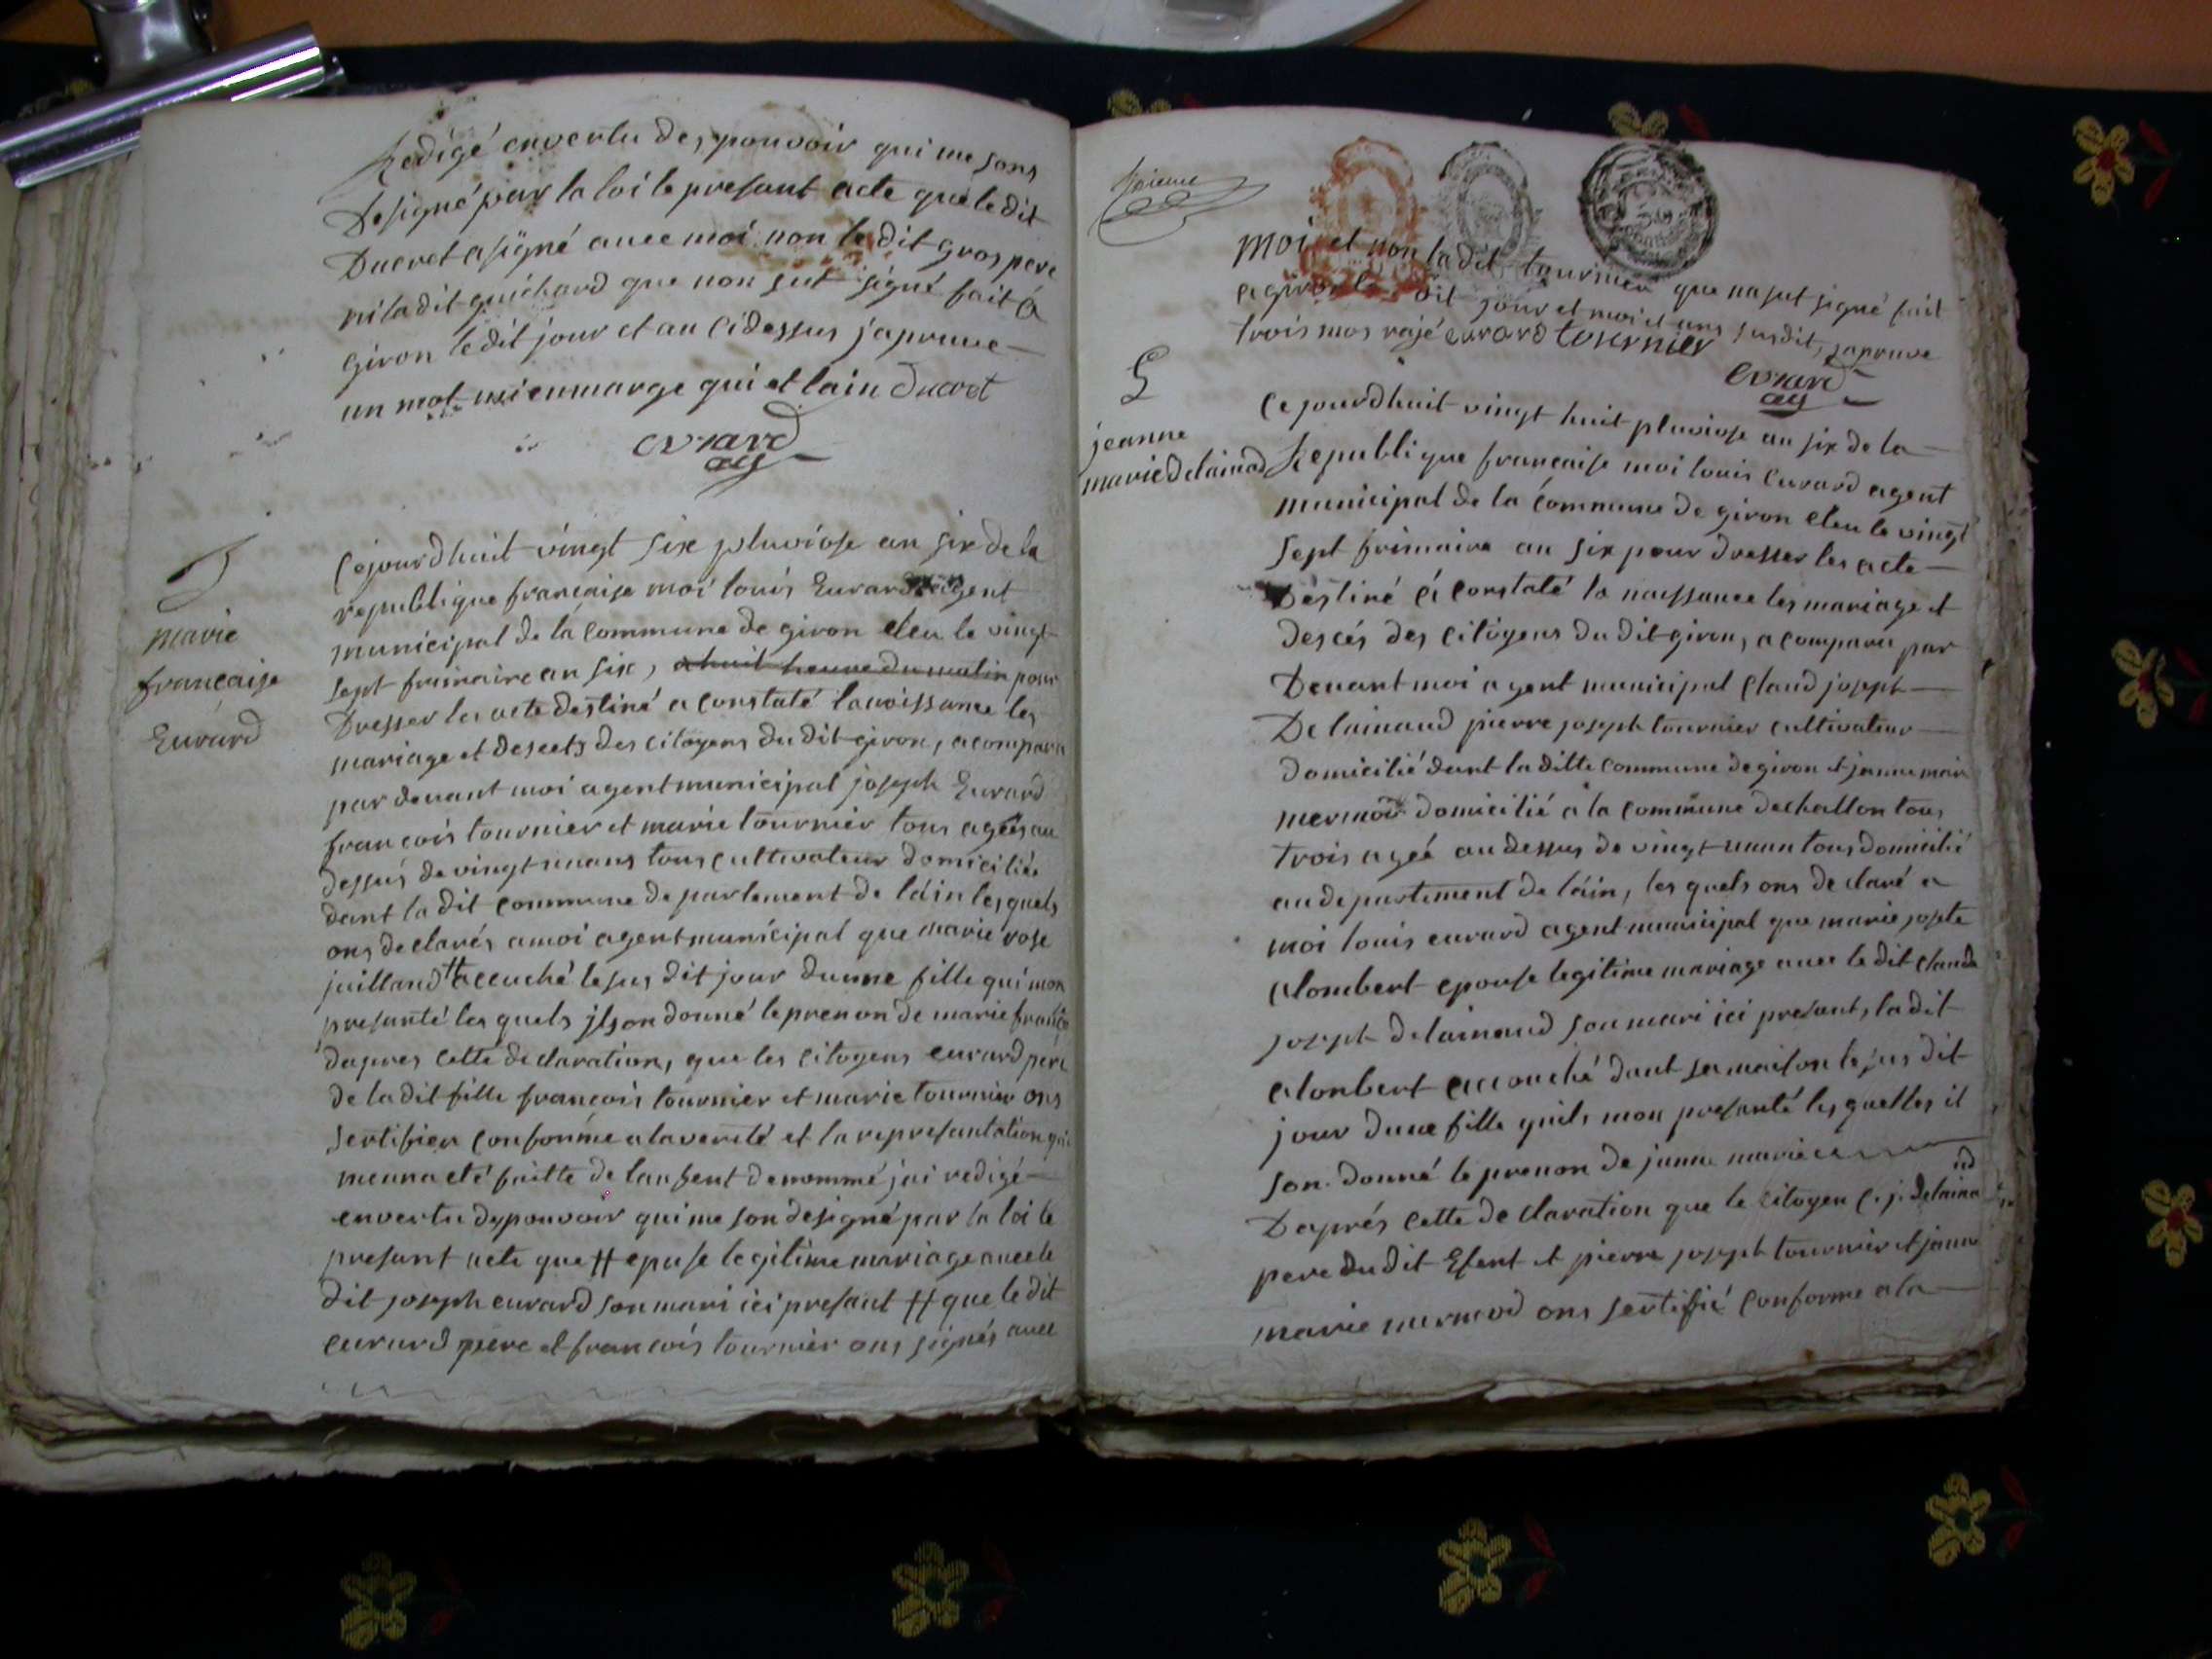 Redigé envertu des pouvoir qui me sons
Designé par la loi le presant acte que le dit
Ducret asigné avec moi non le dit gros pere
ni la dit guichard que non sut signé fait a
giron le dit jour et an cidessus japruve
un mot mi enmarge qui et lain Ducret
evrard
ag
Cejourdhuit vingt six pluviose an six de la
republique française moi louis Evrard agent
municipal de la commune de giron eleu le vingt
sept frimaire an six, a huit heure du matin pour
Dresser les acte destiné a constaté la noissance les
mariage et descets des citoyens du dit giron, acomparu
par devant moi agent municipal joseph Evrard
françois tournier et marie tournier tous agées au
dessus de vingt un ans tous cultivateur domiciliée
dant la dit commune departement de lain lesquels
ons declarés amoi agent municipal que marie rose
juilland # accuché le sus dit jour dunne fille qui mon
presanté les quels ils on donné le prenon de marie françoise
dapres cette declaration, que les citoyens evrard pere
de la dit fille françois tournier et marie tournier ons
sertifier conforme a la verité et la represantation qui
menna eté faitte de lanfent denommé jai redigé
envertu dy pouvoir qui me son designé par la loi le
presant acte que # epuse legitime mariage avec le
dit joseph evrard son mari ici presant # que le dit
evrard pere et françois tournier ons signés avec
marie
française
Evrard
moi et non la dit tournier que na sut signé fait
a giron le dit jour et moi et ans susdit, japruve
trois mos rajé evrard tournier
evrard
ag
jeanne
marie delainad
Ce jourdhuit vingt huit pluviose an six de la
Republique française moi louis Evrard agent
municipal de la commune de giron eleu le vingt
sept frimaire an six pour dresser les acte
Destiné a constaté la naissance les mariage et
descés des citoyens du dit giron, a comparu par
Devant moi agent municipal claud joseph
Delainaud pierre joseph tournier cultivateur
domicilié dant la ditte commune de giron et janne marie
mermod domicilié a la commune dechallon tous
trois ageé au dessus de vingt un an tous domicilié
au departement de lain, les quels ons declaré a
moi louis evrard agent municipal que marie josepte
alombert epouse legitime mariage avec le dit claude
joseph delainaud son mari ici presant, la dit
alonbert accouché dant sa maison le sus dit
jour dune fille quils mon presanté les quelles il
son donné le prenon de janne marie
Daprés cette declaration que le citoyen c. j. delainaud
pere du dit Efent et pierre joseph tournier et janne
marie mermod ons sertifié conforme a la